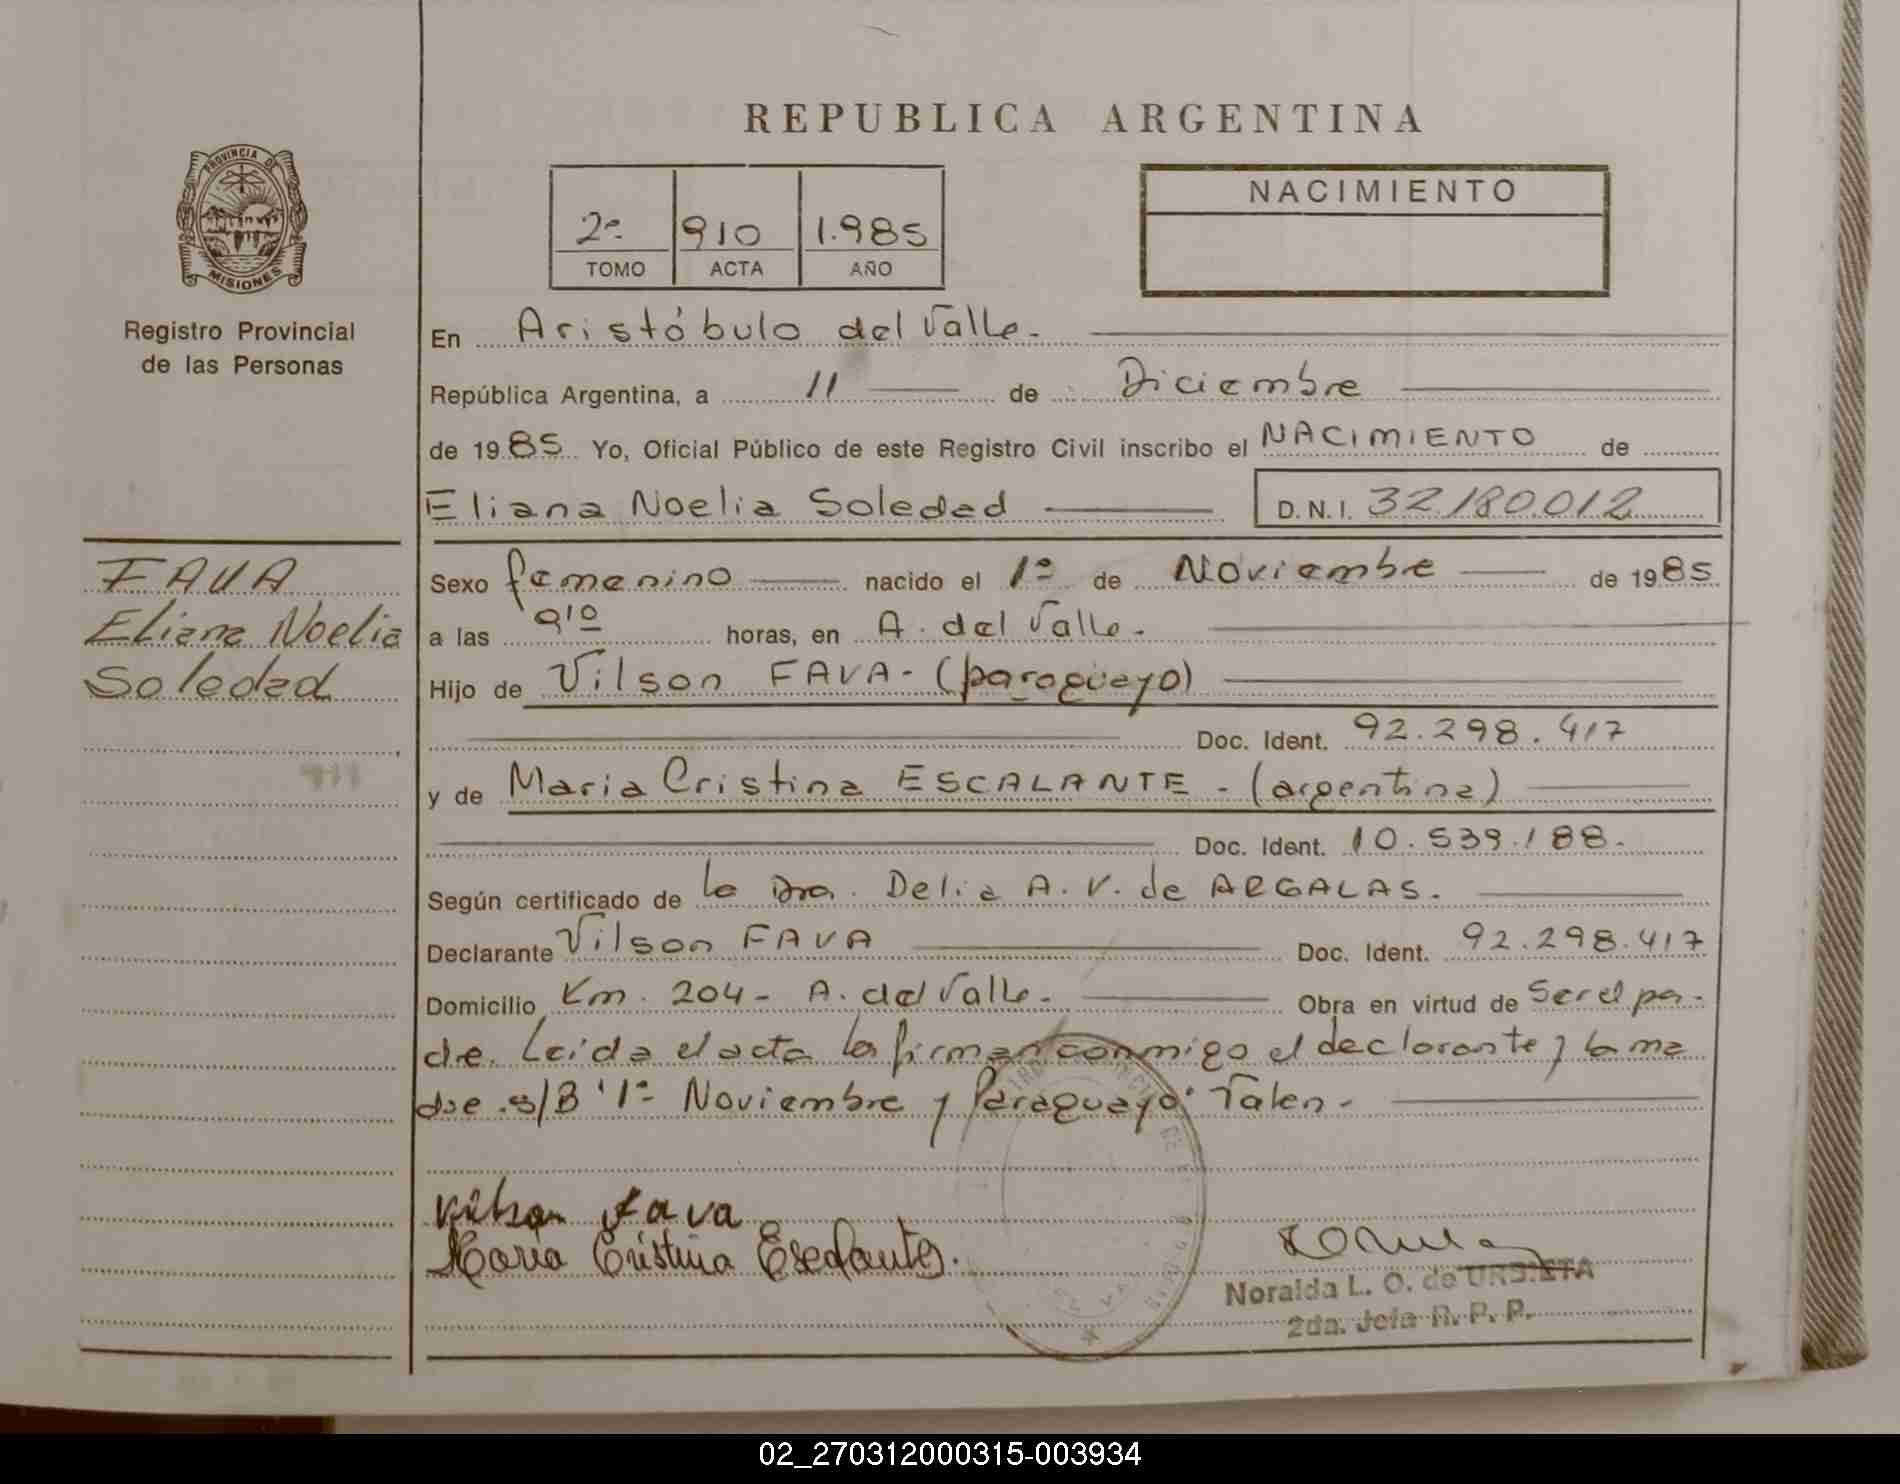 REPUBLICA ARGENTINA
PROVINCIA DE
MISIONES
Registro Provincial
de las Personas
2º 910 1.985
TOMO ACTA AÑO
NACIMIENTO
En Aristóbulo del Valle.
República Argentina, a 11 de Diciembre
de 1985 Yo, Oficial Público de este Registro Civil inscribo el NACIMIENTO de
Eliana Noelia Soledad D.N.I. 32180.012
FAVA
Eliana Noelia
Soledad
Sexo femenino nacido el 1º de Noviembre de 1985
a las 9'10 horas, en A. del Valle.
Hijo de Vilson FAVA - (paragüayo)
Doc. Ident. 92.298.417
y de Maria Cristina ESCALANTE - (argentina)
Doc. Ident. 10.539.188.
Según certificado de la Dra. Delia A. V. de ARGALAS.
Declarante Vilson FAVA Doc. Ident. 92.298.417
Domicilio Km. 204 - A. del Valle. Obra en virtud de Ser el pa-
dre. Leida el acta la firman conmigo el declarante y la ma
dre. s/B "1º Noviembre y Paraguayo" Valen.
Vilson Fava
Maria Cristina Escalante.
Noralda L. O. de URBIETA
2da. Jefa R. P. P.
02_270312000315-003934